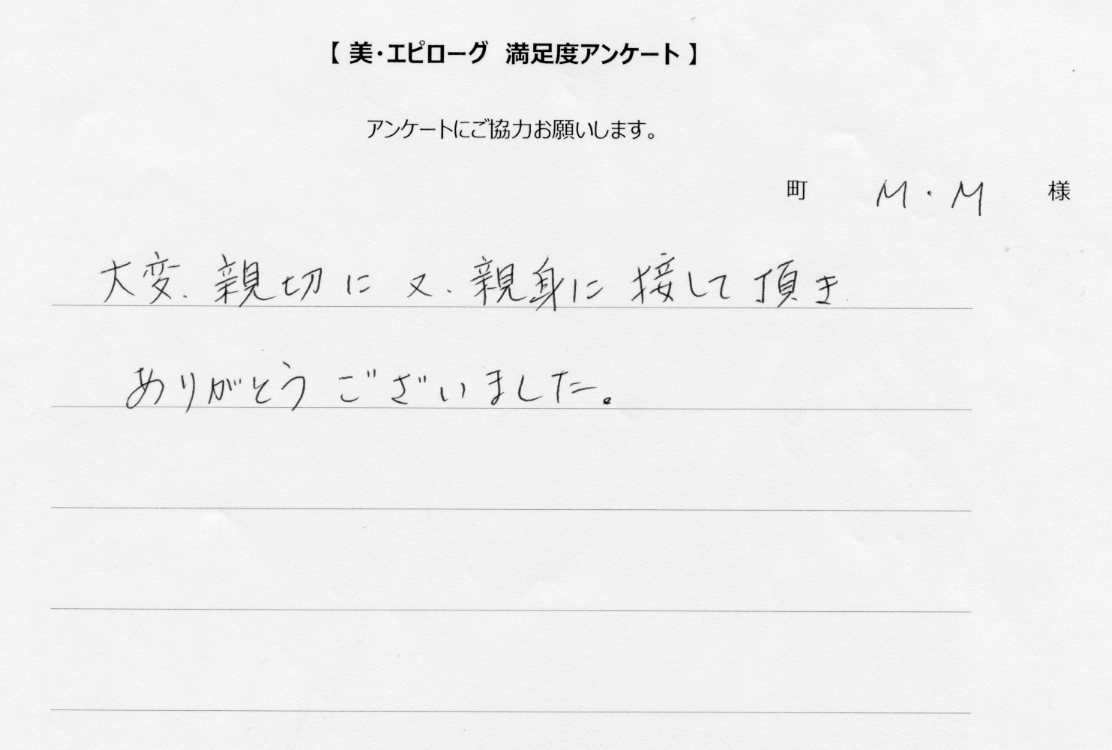 【 美・エピローグ 満足度アンケート 】
アンケートにご協力お願いします。
町 M・M 様
大変、親切に 又、親身に 接して 頂き
ありがとう ございました。